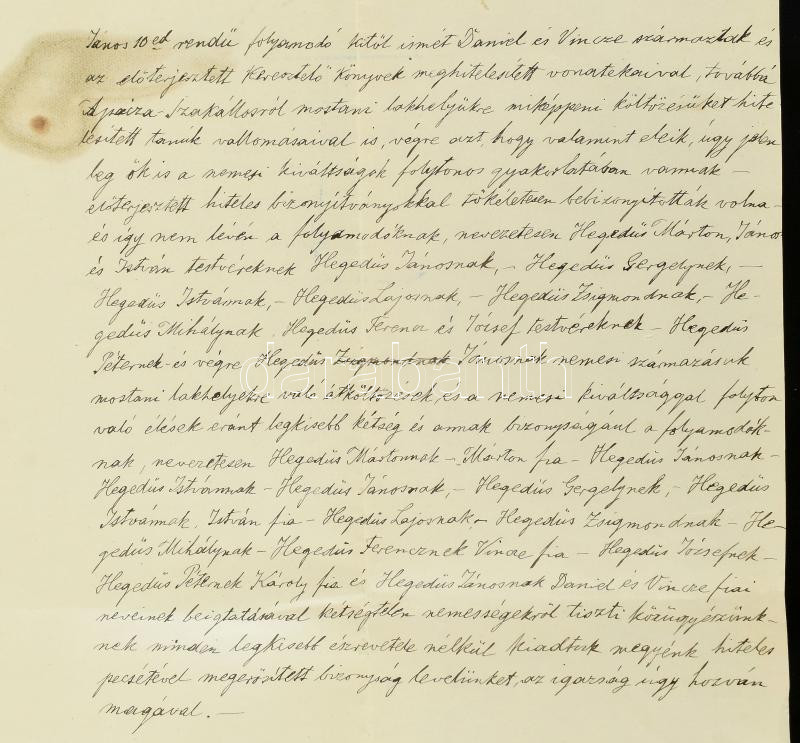 János 10ed rendű folyamodó kitől ismét Daniel és Vincze származtak és
az előterjesztett keresztelő könyvek meghitelesített vonatékaival, továbbá
Apácza-Szakállosról mostani lakhelyükre miképpeni költözésüket hite
lesített tanúk vallomásaival is, végre azt, hogy valamint eleik, úgy jelen
leg ők is a nemesi kiváltságok folytonos gyakorlatában vannak –
előterjesztett hiteles bizonyítványokkal tökéletesen bebizonyították volna –
és így nem lévén a folyamodóknak, nevezetesen Hegedüs Márton, János
és István testvéreknek Hegedüs Jánosnak, – Hegedüs Gergelynek, –
Hegedüs Istvánnak, – Hegedüs Lajosnak, – Hegedüs Zsigmondnak, – He-
gedüs Mihálynak, Hegedüs Ferencz és József testvéreknek – Hegedüs
Péternek és végre Hegedüs Zsigmondnak Jánosnak nemesi származásuk
mostani lakhelyekre való átköltözések, és a nemesi kiváltsággal folyton
való élések eránt legkisebb kétség és annak bizonyságául a folyamodók-
nak, nevezetesen Hegedüs Mártonnak – Márton fia – Hegedüs Jánosnak –
Hegedüs Istvánnak – Hegedüs Jánosnak, – Hegedüs Gergelynek, – Hegedüs
Istvánnak, István fia – Hegedüs Lajosnak – Hegedüs Zsigmondnak – He-
gedüs Mihálynak – Hegedüs Ferencznek Vincze fia – Hegedüs Józsefnek –
Hegedüs Péternek Károly fia és Hegedüs Jánosnak Daniel és Vincze fiai
neveinek beigtatásával kétségtelen nemességekről tiszti közügyészünk-
nek minden legkisebb észrevétele nélkül kiadtuk megyénk hiteles
pecsétével megerősített bizonyság levelünket, az igazság úgy hozván
magával. –
darabanth